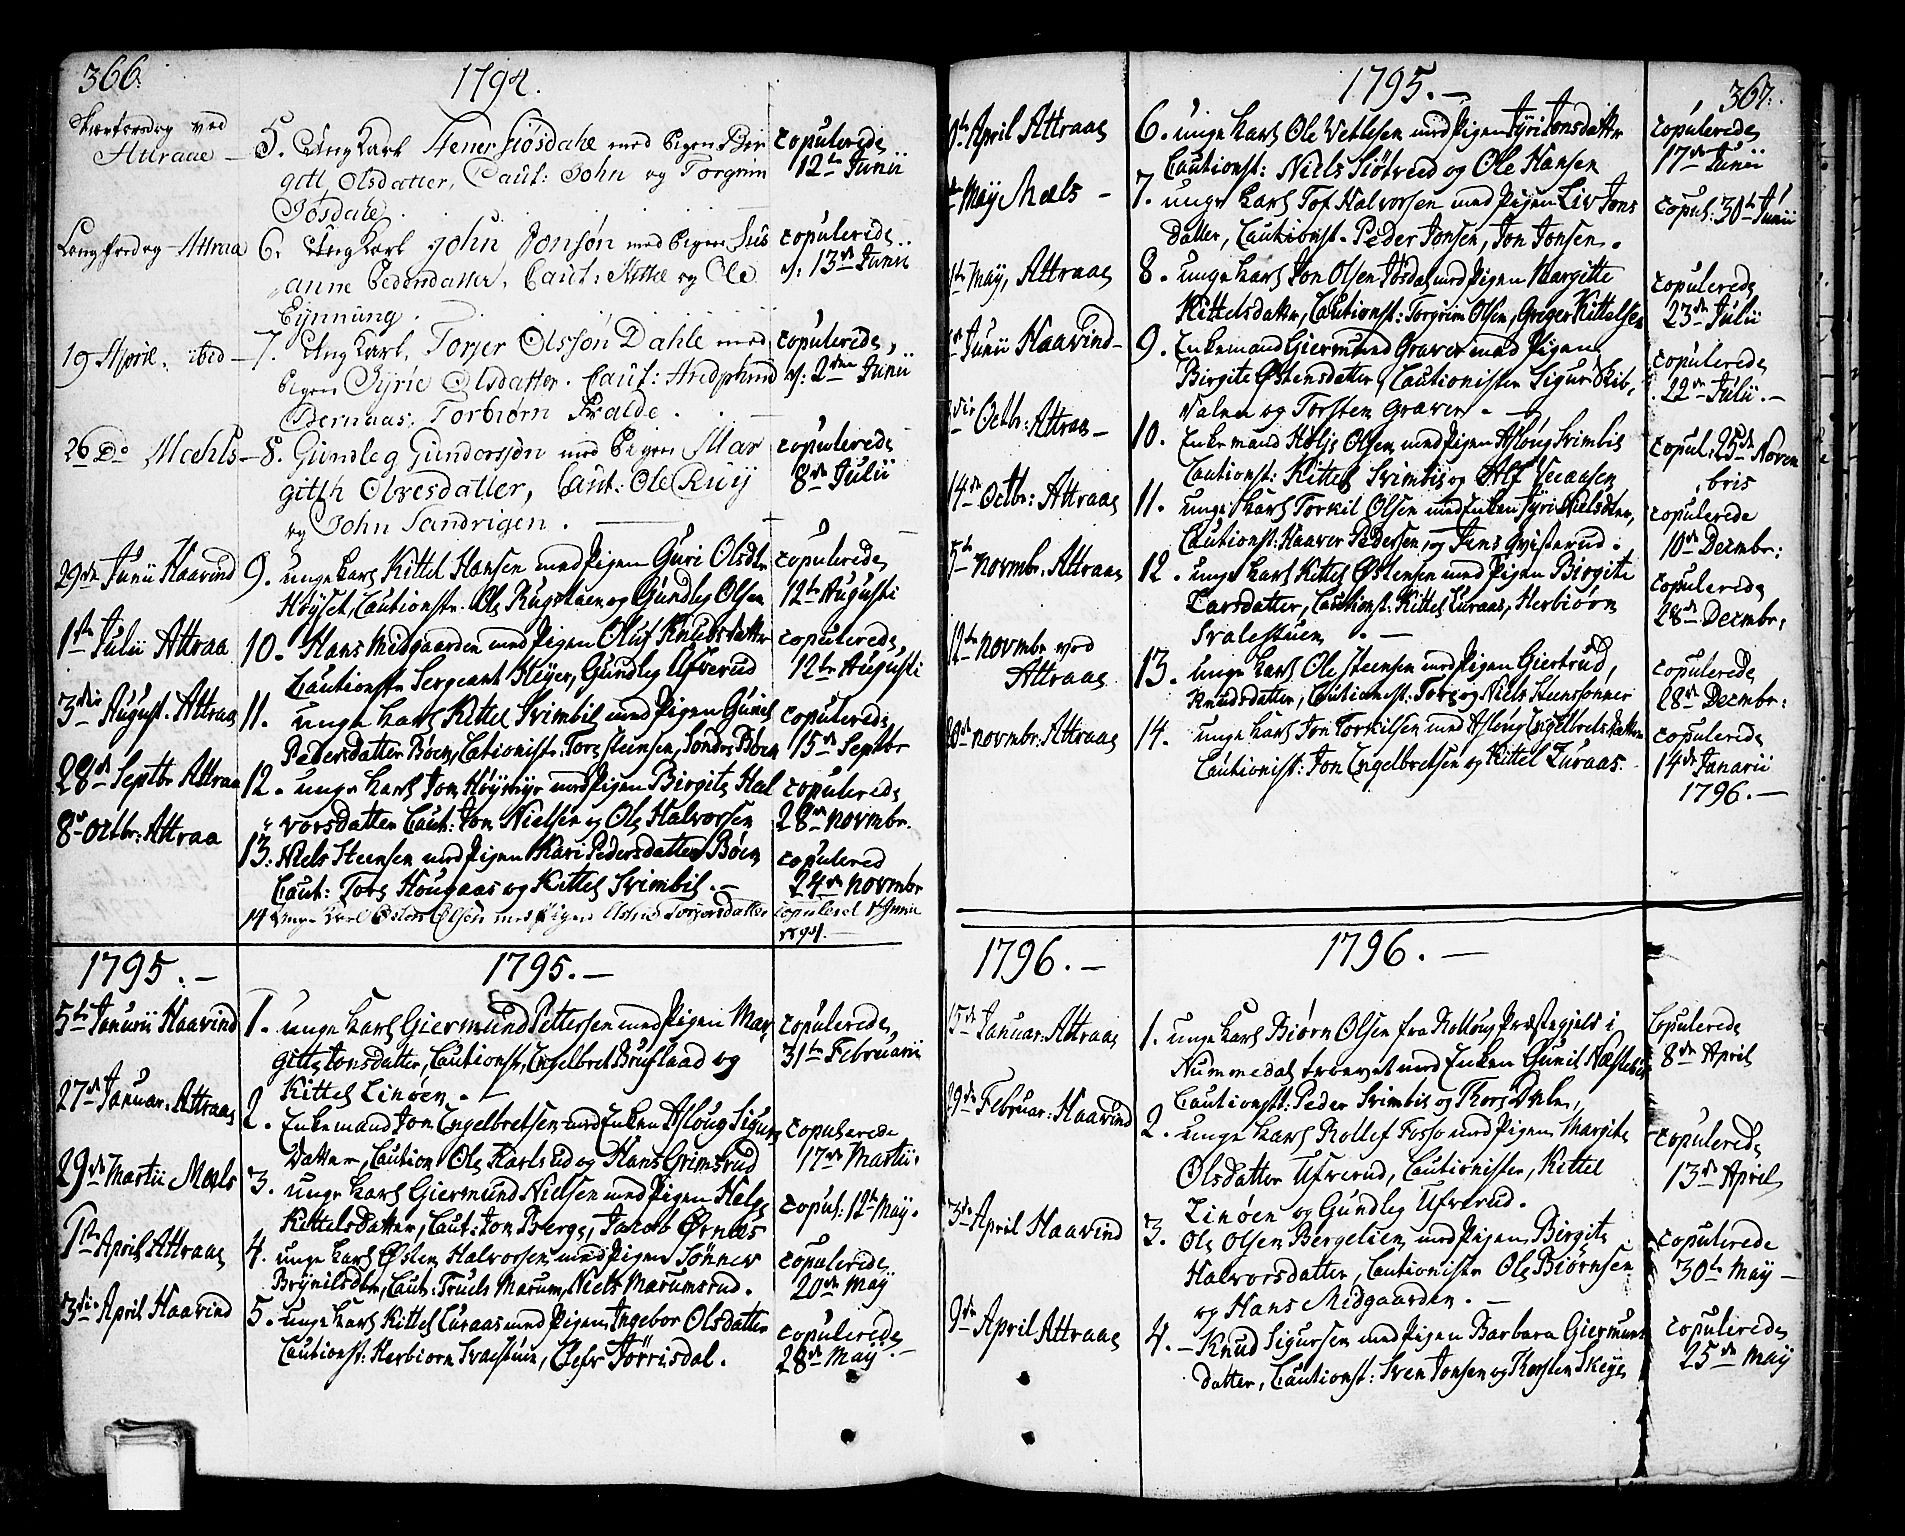 366.
1794.
Skiærtorsdag ved
Attraae —
5. Ung Karl Stener Jøsdahl med Pigen Bir
gitt Olsdatter, Caut: John og Torgrim
Jøsdahl.
copulerede
12te Junii
Langfredag Attraa
6. Ung Karl John Jonsøn med Pigen Sus
anne Pedersdatter, Caut: Kittel og Ole
copulerede
d: 13de Junii
19 Aprile. ibid —
7. Ung Karl, Torjer Olssøn Dahle med
Pigen Gyrie Olsdatter. Caut:
Bernaas, Torbiørn
copulerede,
d: 2den Junii
26 Do Mæhls —
8. Gundleg Gunderssøn med Pigen Mar
gitth Olvesdatter, Caut: Ole Ruy
og John Sandrigen.
copulerede
8de Julii
29de Junii Haavind
9. unge Karl Kittel Hansen med Pigen Guri Olsdtr
Høyset, Cautionistr. Ole Rugstuen og Gundleg Olsen
copulerede
12te Augusti
1ste Julii Attraa
10. Hans Midgaarden med Pigen Oluf Knudsdatter
Cautionistr Sergeant Heyer, Gundleg Ufverud
copulerede
12te Augusti
3die August. Attraa
11. unge Karl Kittel Svimbil med Pigen Gunil
Pedersdatter Bøen, Cationistr: Tore Steensen, Sondre Bøen
copulerede
15de Septbr
28de Septbr Attraa
12. unge Karl Jon Høymyr med Pigen Birgite Hal
vorsdatter Caut: Jon Nielsen og Ole Halvorsen
copulerede
28de novmbr.
8de Octbr: Attraa
13. Niels Steensen med Pigen Kari Pedersdatter Bøen
Caut: Tore Hougaas og Kittel Svimbil. —
copulered
24de novmbr
14 Unge Karl Østen Olsen med Pigen Torjersdatter
copulered Junii
1794. —
1795. —
1795. —
5te Januarii Haavind
1. unge Karl Giermund Pettersen med Pigen Mar
gitte Jonsdatter, Cautionistr, Engelbret Bruflaad og
Kittel Linøen. —
copulerede
31te Februarii
27de Januar: Attraa
2. Enkemand Jon Engelbretsen med Enken Asloug Sigurs
Datter, Caution Ole Karlsrud og Hans Grimsrud
copulerede
17de Martii.
29de Martii Mæls
3. unge Karl Giermund Nielsen med Pigen Helge
Kittelsdatter, Caut: Jon Berge, Jacob Ørnæs
copul: 12te May.
April Attraa
4. unge Karl Østen Halvorsen med Pigen Sønnev
Brynilsdtr, Caut: Truels Marum, Niels Marumsrud.
copulerede
20de May
3die April Haavind
5. unge Karl Kittel Luraas med Pigen Ingebor Olsdatter
Cautionst: Herbiørn Svalestuen, Olefr Jørrisdal.
copulerede
28de May —
1795. —
367.
April Attraa
6. unge Karl Ole Vetlesen med Pigen Gyri Jonsdattr
Cautionst: Niels Sløtveed og Ole Hansen
copulerede
17de Junii
May Mæls —
7. unge Karl Tof Halvorsen med Pigen Liv Jons
datter, Cautionst. Peder Jonsen, Jon Jonsen.
copul: 30te Junii
May, Attraa
8. unge Karl Jon Olsen Jøsdal med Pigen Margitte
Kittelsdatter, Cautionst: Torgrim Olsen, Greger Kittelsen
copulerede
23de Julii
Junii Haavind —
9. Enkemand Giermund Graver med Pigen
Birgite Østensdatter, Cautionister Sigur Skib,
Valne og Torsten Graver. —
copulerede
22de Julii. —
Octbr: Attraa —
10. Enkemand Holje Olsen med Pigen Asloug Svimbil
Cautionst: Kittel Svimbil og Alf
copul: 25de Novem
bris
14de Octbr: Attraa
11. unge Karl Torkil Olsen med Enken Gyri Nielsdtter,
Cautionst: Haaver Pedersen, og Jens Qvisterud.
copulerede
10de Decmbr:
5te Novmbr. Attraa
12. unge Karl Kittel Østensen med Pigen Birgite
Larsdatter, Cautionst: Kittel Luraas, Herbiørn
Svalestuen. —
copulerede
28de Decmbr:
12te novmbr ved
Attraa
13. unge Karl Ole Steensen med Pigen Giertrud,
Knudsdatter, Cautionst: Tore og Niels Steenssønner
copulerede
28de Decmbr:
20de novmbr. Attraa
14. unge Karl Jon Torkilsen med Asloug Engelbretsdatter
Cautionist: Jon Engelbretsen og Kittel Luraas.
copulerede
14de Janarii
1796. —
1796. —
1796. —
15de Januar: Attraa
1. unge Karl Biørn Olsen fra Rolloug Præstegield i
Nummedal troevet med Enken Gunil
Cautionst: Peder Svimbil og Thore Dale,
Copulerede
8de April
29de Februar: Haavind
2. unge Karl Rollef Fosso med Pigen Margite
Olsdatter Ufverud, Cautionister, Kittel
Linøen og Gundleg Ufverud.
copulerede
13de April
3die April Haavind
3. Ole Olsen Bergelien med Pigen Birgite
Halvorsdatter, Cautionistr Ole Biørnsen
og Hans Midgaarden. —
copulerede
30te May —
9de April Attraa
4. — Knud Sigursen med Pigen Barbara Giermuns
datter, Cautionst: Sven Jonsen og Torsten Skeye
copulerede
25de May